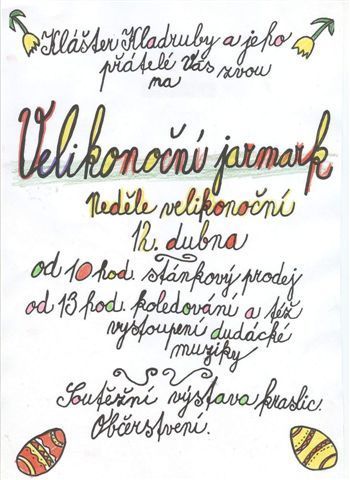 Klášter Kladruby a jeho
přátelé Vás zvou
na
Velikonoční jarmark
Neděle velikonoční
12. dubna
od 10 hod. stánkový prodej
od 13 hod. koledování a též
vystoupení dudácké
muziky
Soutěžní výstava kraslic.
Občerstvení.